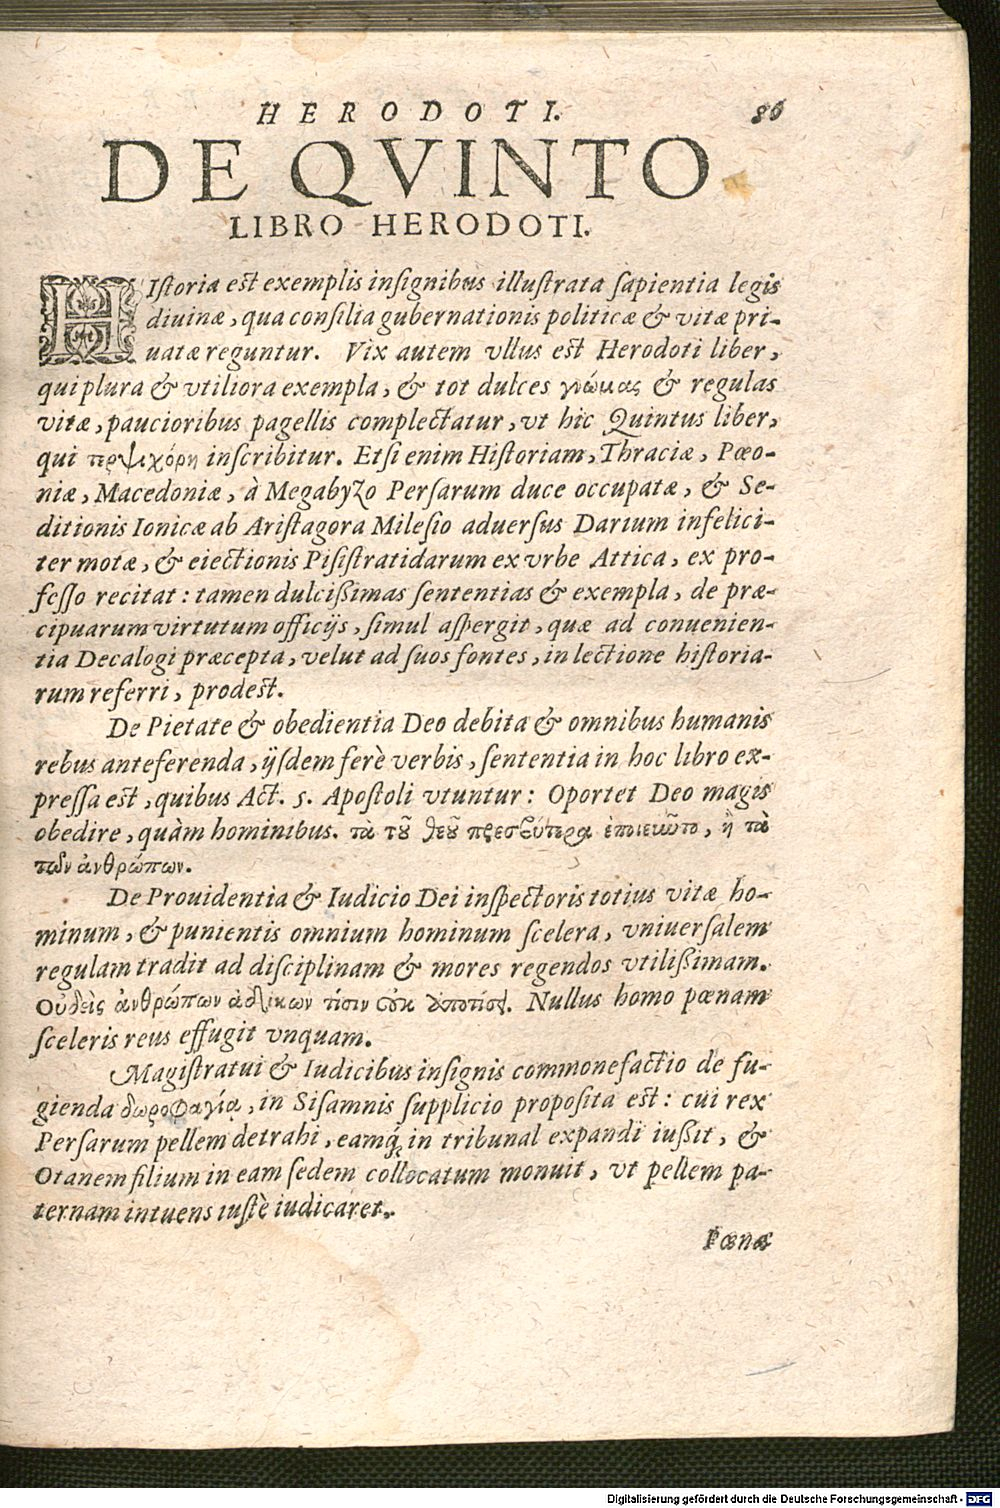 HERODOTI. 86
DE QVINTO
LIBRO HERODOTI.
HIſtoria est exemplis inſignibus illuſtrata ſapientia legis
diuinæ, qua conſilia gubernationis politicæ & vitæ pri-
uatæ reguntur. Vix autem vllus est Herodoti liber,
qui plura & vtiliora exempla, & tot dulces γνώμας & regulas
vitæ, paucioribus pagellis complectatur, vt hic Quintus liber,
qui τερψιχόρη inſcribitur. Etſi enim Hiſtoriam, Thraciæ, Pœo-
niæ, Macedoniæ, à Megabyzo Perſarum duce occupatæ, & Se-
ditionis Ionicæ ab Ariſtagora Mileſio aduerſus Darium infelici-
ter motæ, & eiectionis Piſiſtratidarum ex vrbe Attica, ex pro-
feſſo recitat: tamen dulcißimas ſententias & exempla, de præ-
cipuarum virtutum officijs, ſimul aſpergit, quæ ad conuenien-
tia Decalogi præcepta, velut ad ſuos fontes, in lectione hiſtoria-
rum referri, prodest.
De Pietate & obedientia Deo debita & omnibus humanis
rebus anteferenda, ijſdem ferè verbis, ſententia in hoc libro ex-
preſſa est, quibus Act. 5. Apoſtoli vtuntur: Oportet Deo magis
obedire, quàm hominibus. τὰ τοῦ θεοῦ πρεσβύτερα ἐποιεῦντο, ἢ τὰ
τῶν ἀνθρώπων.
De Prouidentia & Iudicio Dei inſpectoris totius vitæ ho-
minum, & punientis omnium hominum ſcelera, vniuerſalem
regulam tradit ad diſciplinam & mores regendos vtilißimam.
Οὐδεὶς ἀνθρώπων ἀδικῶν τίσιν οὐκ ἀποτίσει. Nullus homo pœnam
ſceleris reus effugit vnquam.
Magiſtratui & Iudicibus inſignis commonefactio de fu-
gienda δωροφαγίᾳ, in Siſamnis ſupplicio propoſita est: cui rex
Perſarum pellem detrahi, eamq́; in tribunal expandi iußit, &
Otanem filium in eam ſedem collocatum monuit, vt pellem pa-
ternam intuens iuſtè iudicaret.
Pœnæ
Digitalisierung gefördert durch die Deutsche Forschungsgemeinschaft - DFG